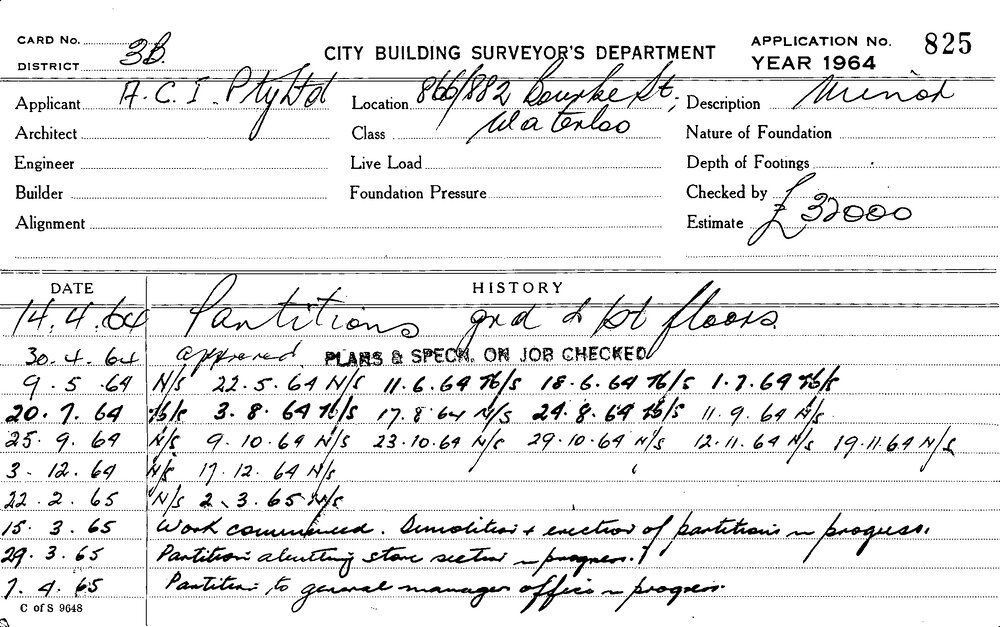 CARD No.
DISTRICT 3B.
CITY BUILDING SURVEYOR'S DEPARTMENT
APPLICATION No. 825
YEAR 1964
Applicant A.C.I. Pty Ltd
Location 866/882 Bourke St, Waterloo
Description Minor
Architect
Class
Nature of Foundation
Engineer
Live Load
Depth of Footings
Builder
Foundation Pressure
Checked by
Alignment
Estimate £32000
DATE HISTORY
14.4.64 Partitions grd & 1st floors.
30.4.64 approved PLANS & SPECN. ON JOB CHECKED
9.5.64 N/s 22.5.64 N/s 11.6.64 18.6.64 1.7.64
20.7.64 3.8.64 17.8.64 N/s 24.8.64 11.9.64 N/s.
25.9.64 N/s 9.10.64 N/s 23.10.64 N/s 29.10.64 N/s 12.11.64 N/s 19.11.64 N/s
3.12.64 N/s 17.12.64 N/s
22.2.65 N/s 2.3.65 N/s
15.3.65 Work commenced. Demolition + erection of partitions in progress.
29.3.65 Partition abutting store section in progress.
7.4.65 Partition to general managers office in progress.
C of S 9648